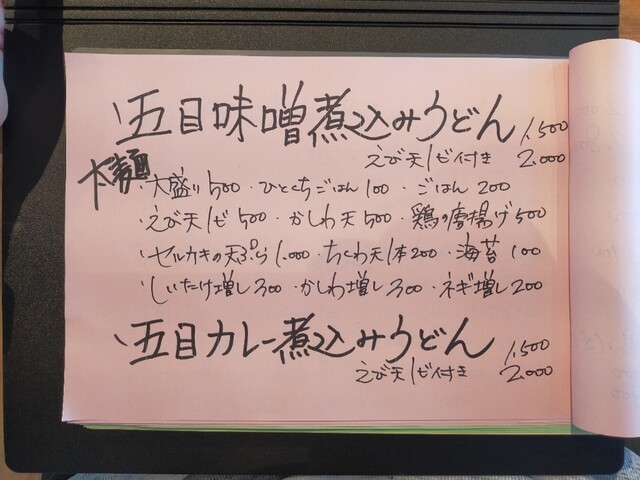 ・五目味噌煮込みうどん 1,500
えび天1ピ付き 2,000
太麺
・大盛り500・ひとくちごはん100・ごはん200
・えび天1ピ500・かしわ天500・鶏の唐揚げ500
・むかごの天ぷら1,000・ちくわ天1本200・海苔100
・しいたけ増し300・かしわ増し300・ネギ増し200
・五目カレー煮込みうどん 1,500
えび天1ピ付き 2,000